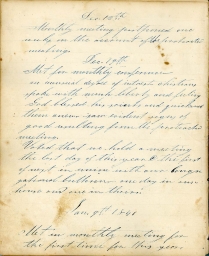 Dec 12th
Monthly meeting postponed one
week on the account of the protracted
meeting.
Dec 19th
Met for monthly conference
an unusual degree of interest. Christians
spoke with much liberty and feeling
God blessed his saints and quickened
them anew saw evident signs of
good resulting from the protracted
meeting.
Voted that we hold a meeting
the last day of this year & the first
of next in union with our Congre
gational brethren one day in our
house and one in theirs.
Jan. 9th 1841
Met in monthly meeting for
the first time for this year